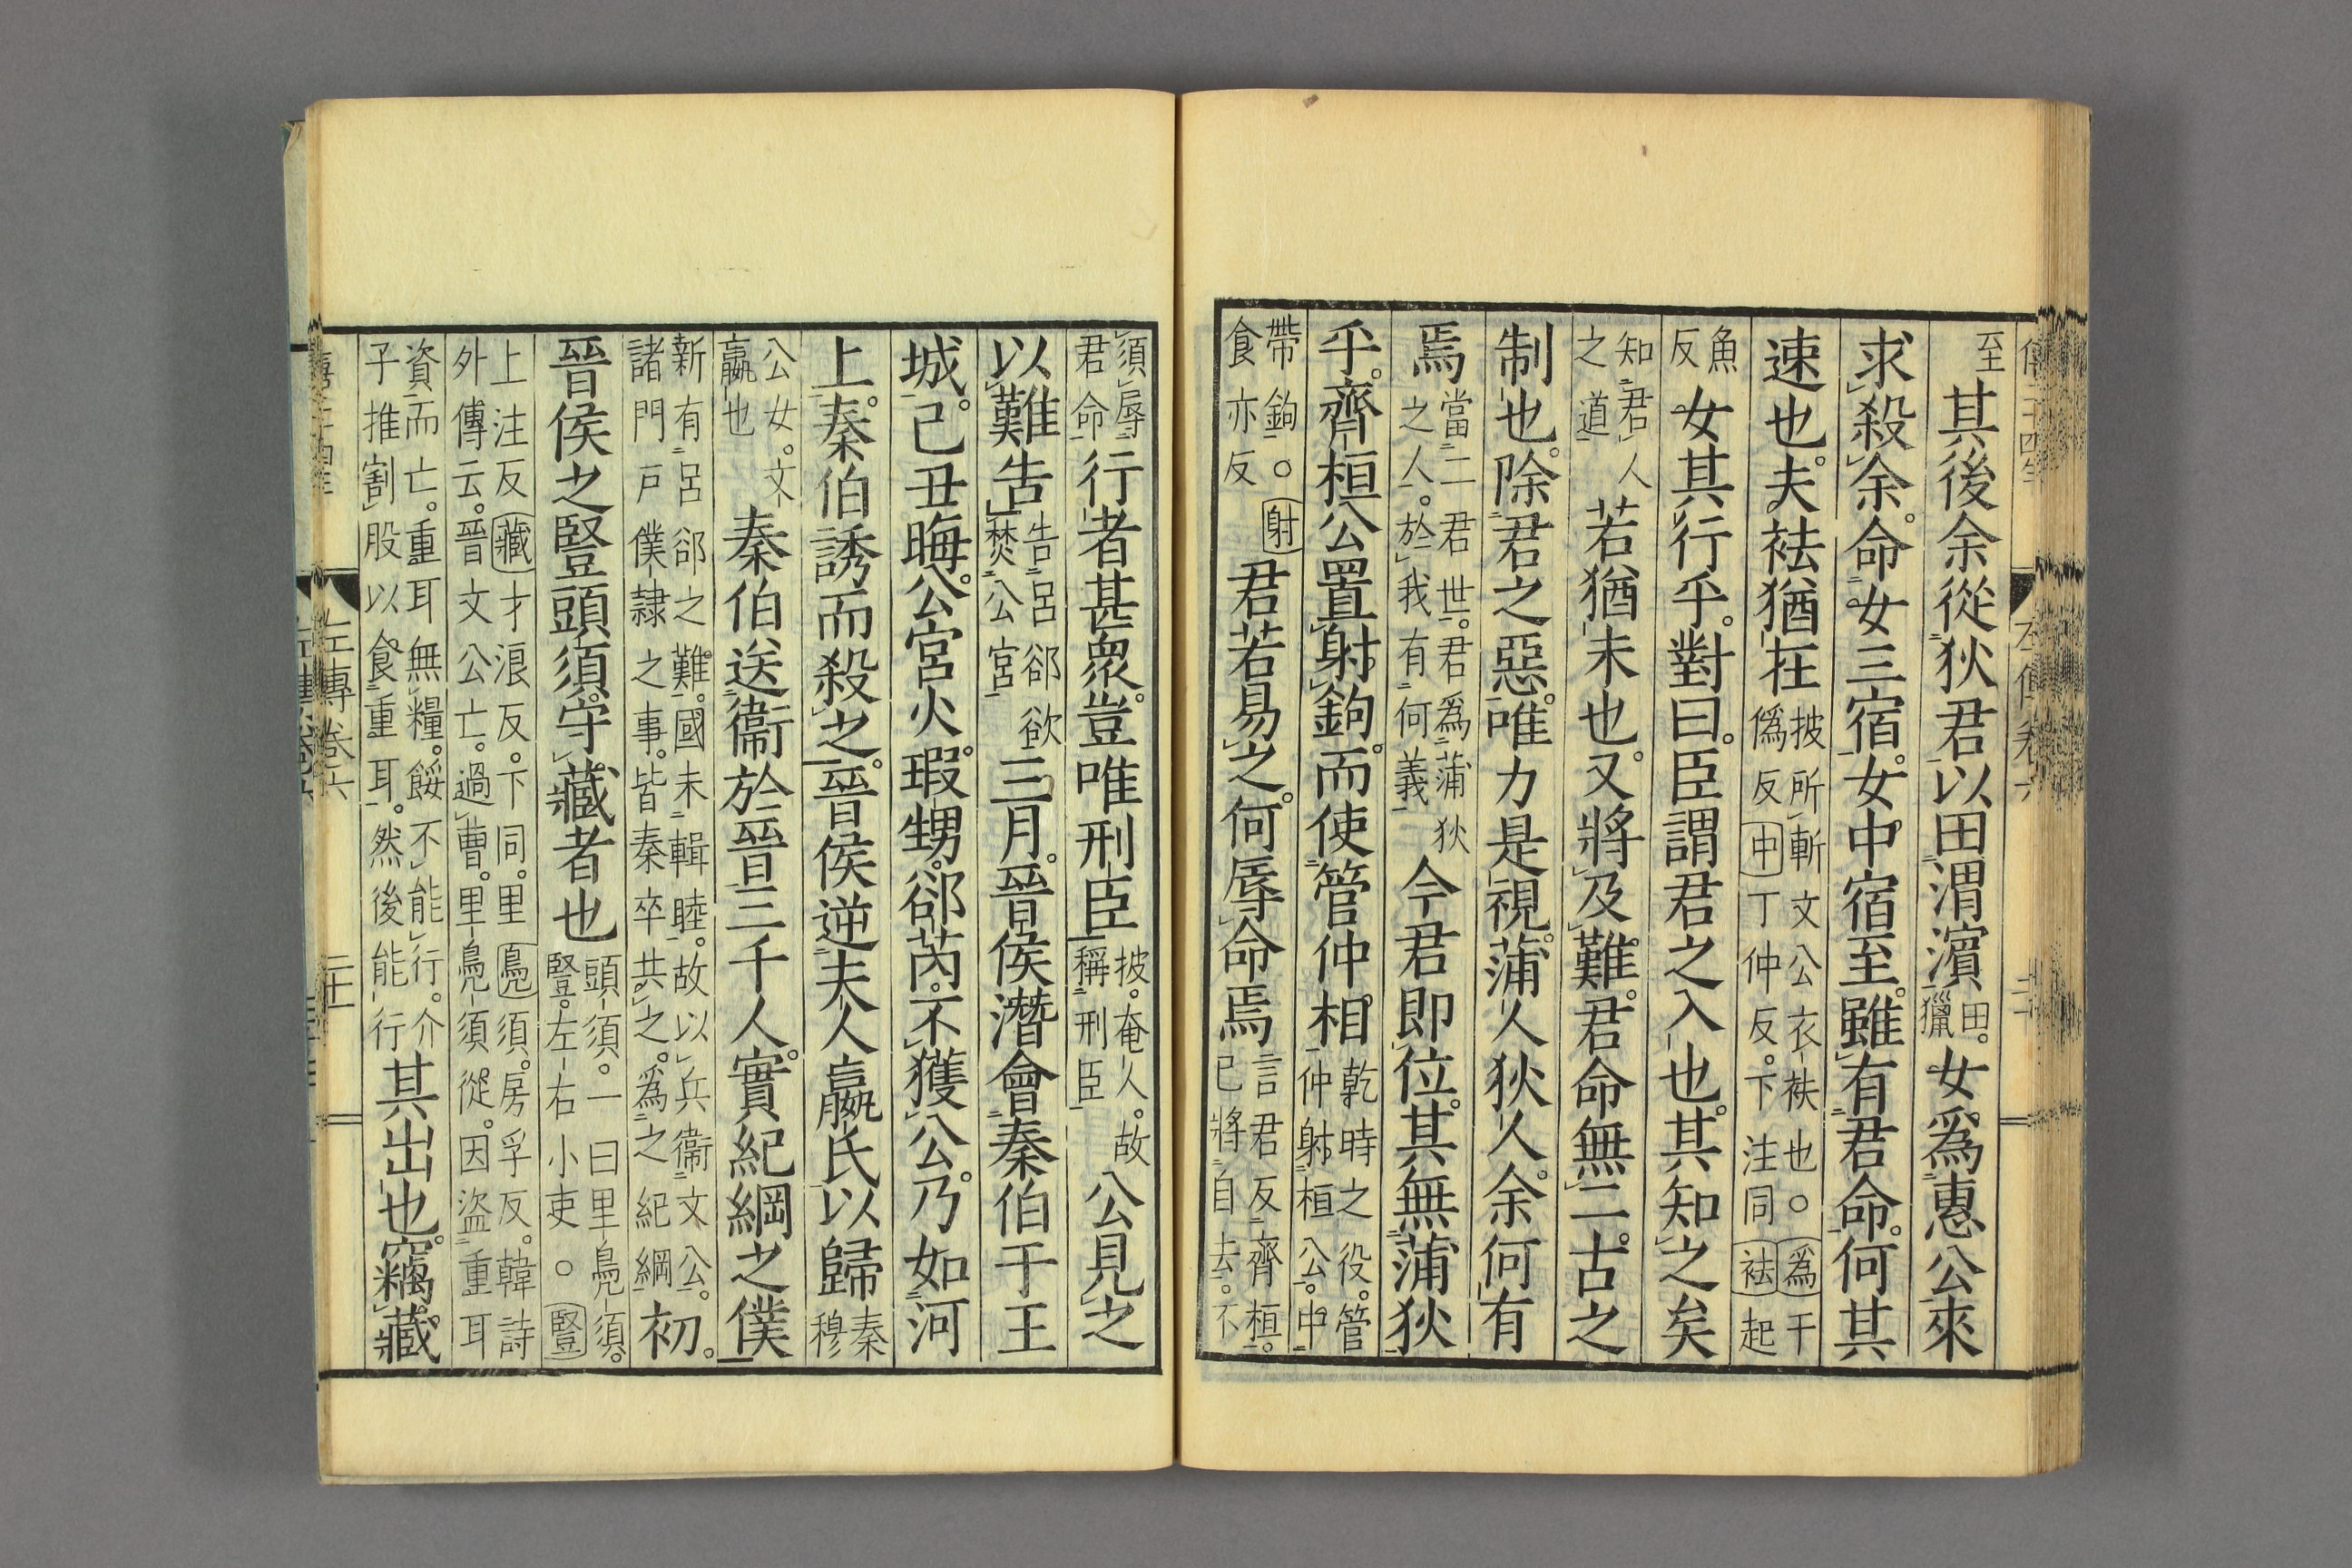 至其後余從狄君以田渭濱田獵女爲惠公來
求殺余命女三宿女中宿至雖有君命何其
速也夫袪猶在披所斬文公衣袂也○爲于僞反中丁仲反下注同袪起
魚反女其行乎對曰臣謂君之入也其知之矣
知君人之道若猶未也又將及難君命無二古之
制也除君之惡唯力是視蒲人狄人余何有
焉當二君世君爲蒲狄之人於我有何義今君即位其無蒲狄
乎齊桓公置射鉤而使管仲相乾時之役管仲射桓公中
帶鉤○射食亦反君若易之何辱命焉言君反齊桓己將自去不
須辱君命行者甚衆豈唯刑臣披奄人故稱刑臣公見之
以難告告呂郤欲焚公宮三月晉侯潛會秦伯于王
城己丑晦公宮火瑕甥郤芮不獲公乃如河
上秦伯誘而殺之晉侯逆夫人嬴氏以歸秦穆
公女文嬴也秦伯送衞於晉三千人實紀綱之僕
新有呂郤之難國未輯睦故以兵衞文公諸門戶僕隸之事皆秦卒共之爲之紀綱初
晉侯之豎頭須守藏者也頭須一曰里鳧須豎左右小吏○豎
上注反藏才浪反下同里鳧須房孚反韓詩外傳云晉文公亡過曹里鳧須從因盜重耳
資而亡重耳無糧餒不能行介子推割股以食重耳然後能行其出也竊藏
左傳卷六